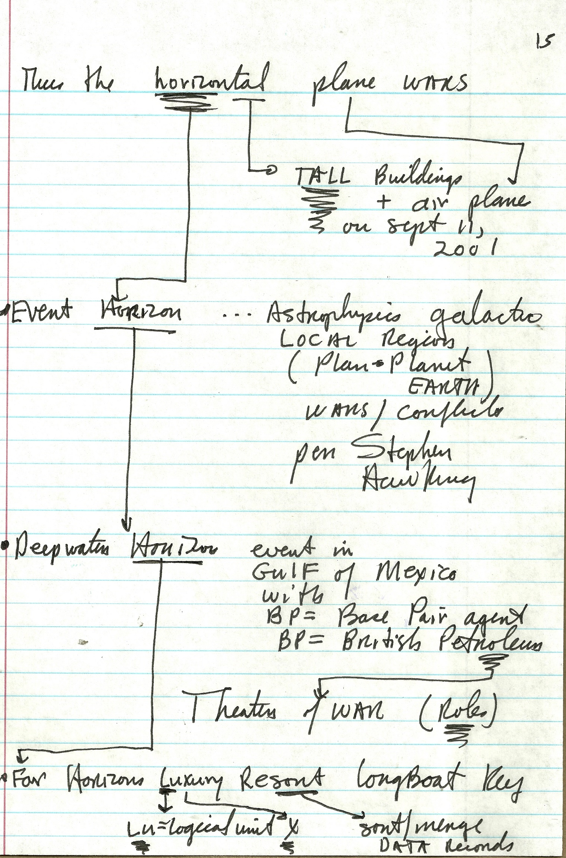 15
Thus the horizontal plane WARS
TALL Buildings
+ air plane
on Sept 11,
2001
• Event Horizon ... Astrophysics galactic
LOCAL Region
(Plan • Planet
EARTH)
WARS / conflicts
per Stephen
Hawking
• Deepwater Horizon event in
GULF of Mexico
with
BP = Base Pair agent
BP = British Petroleum
Theaters of WAR (Roles)
• Far Horizons Luxury Resort Longboat Key
Lu = logical unit X sort/merge
DATA Records